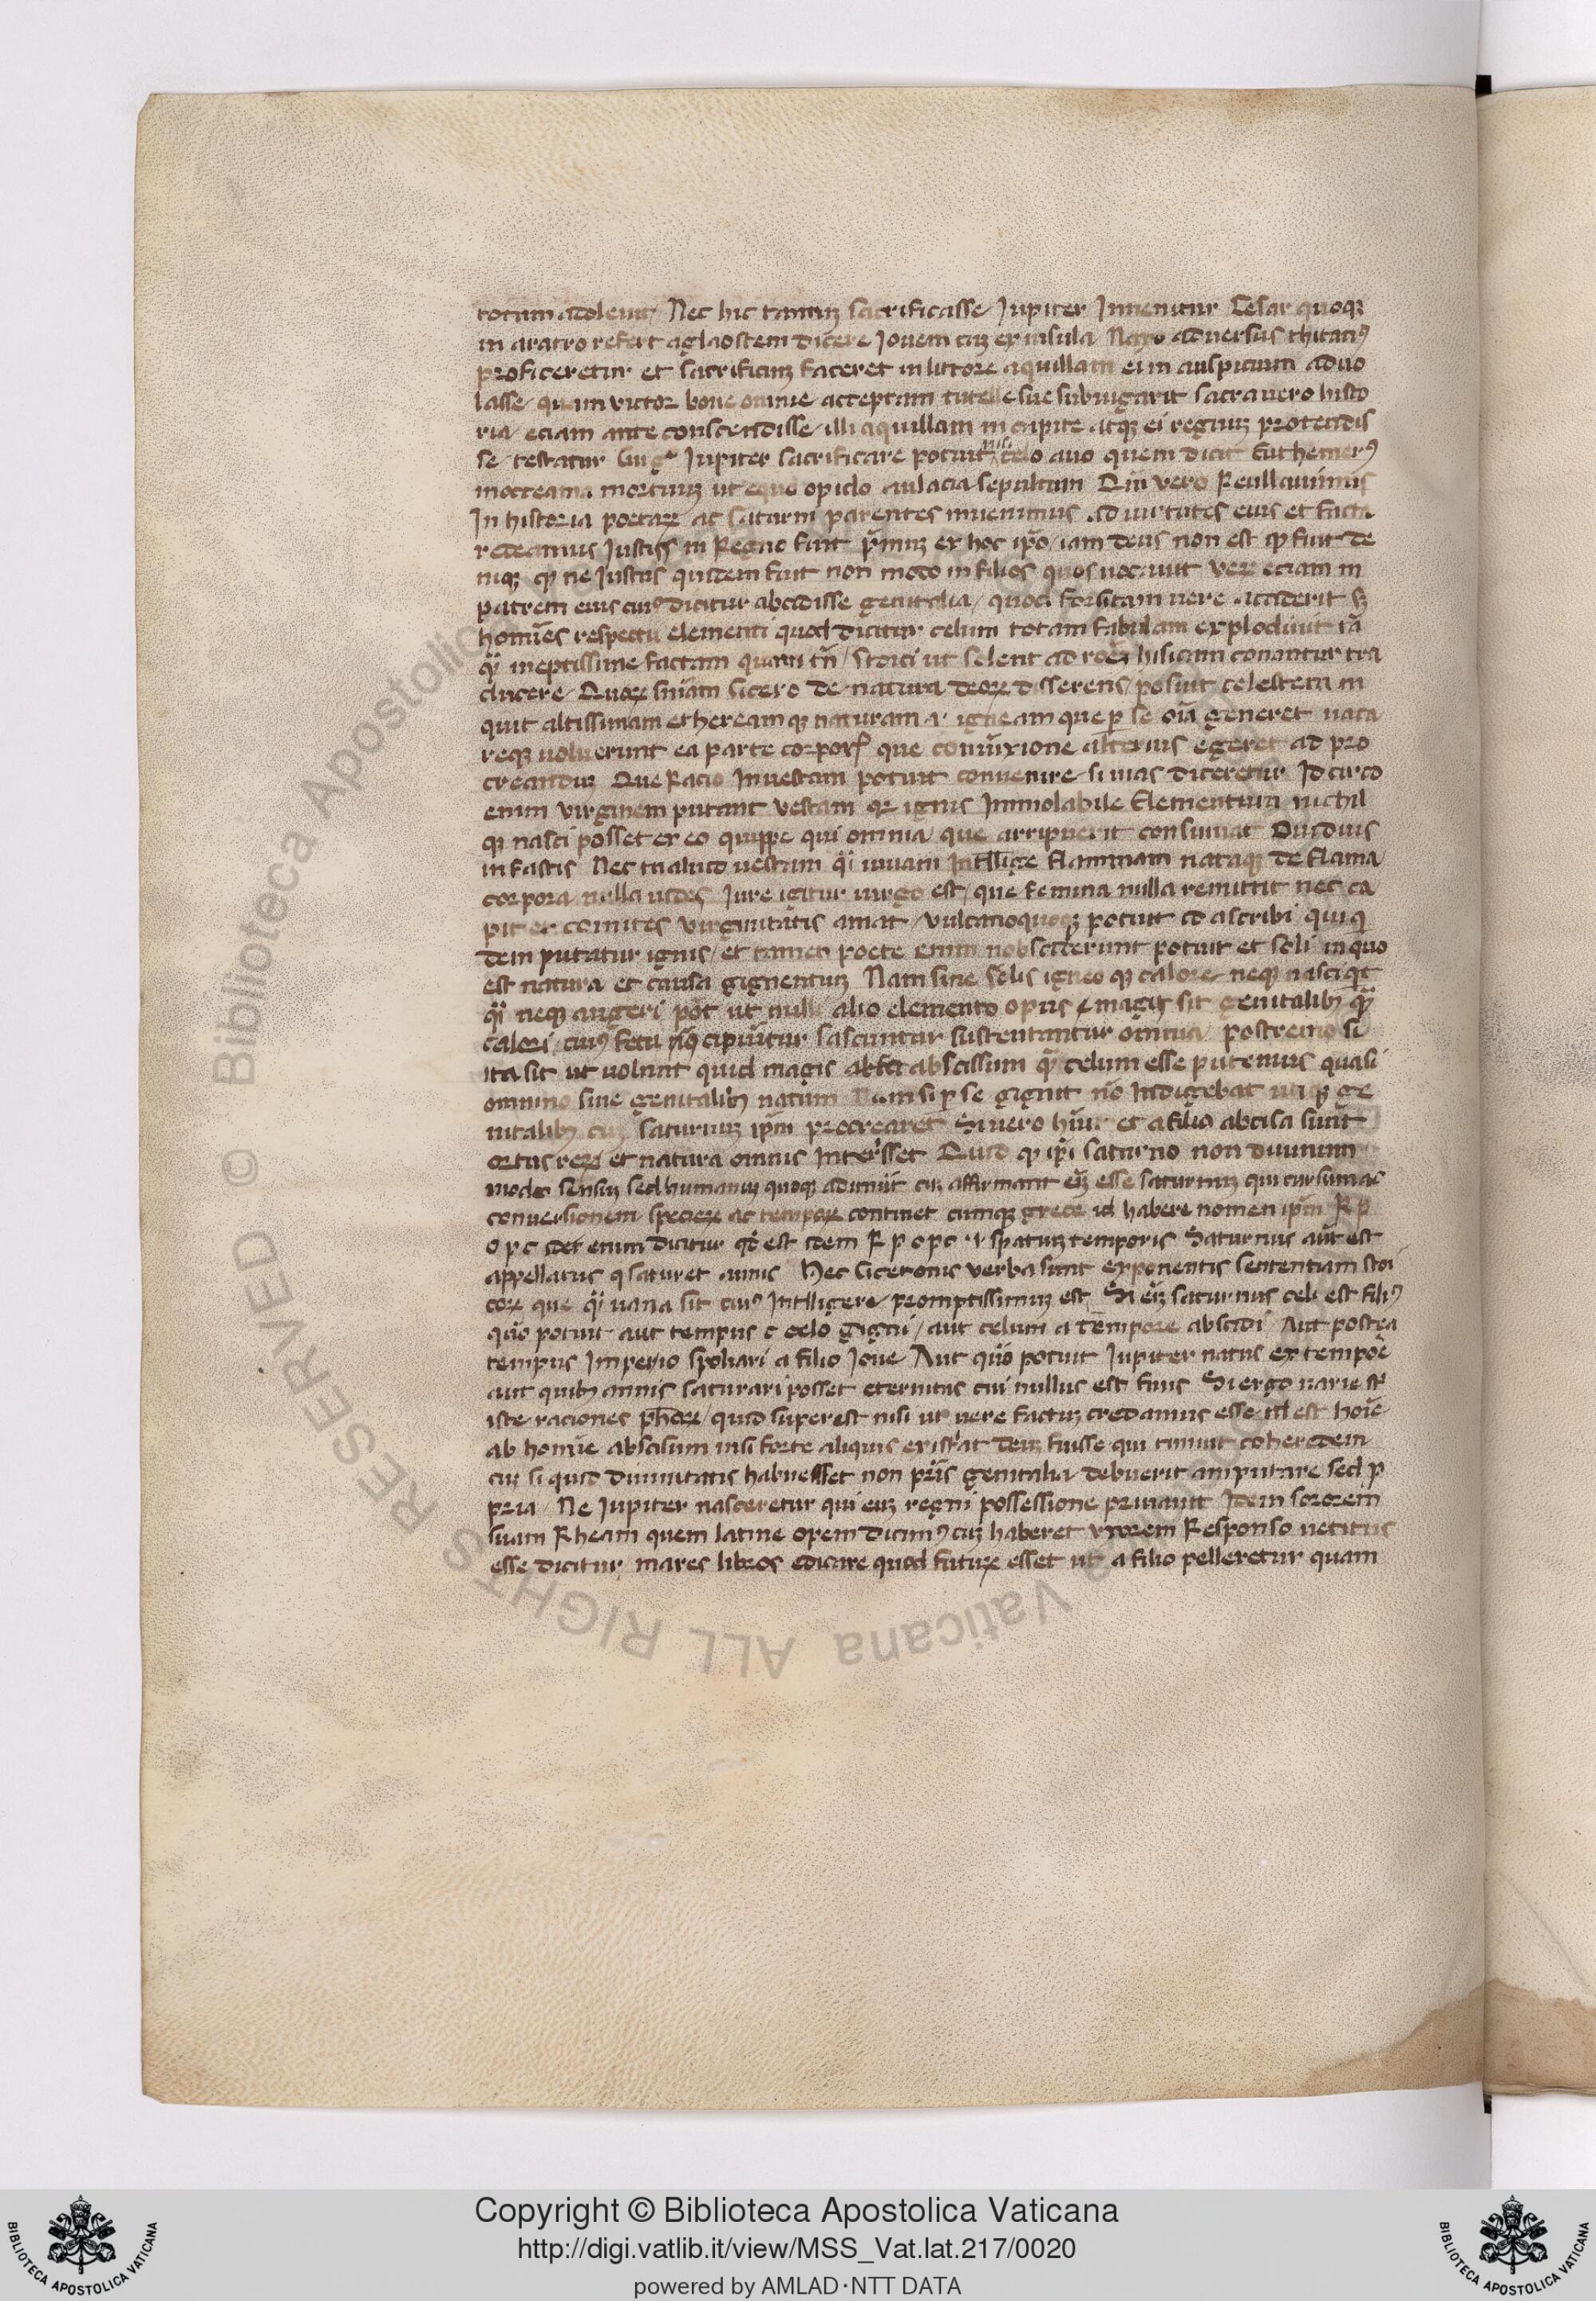 totum adoleuit / Nec hic tantuꝫ sacrificasse Jupiter Inuenitur Cesar quoqꝫ
in aratro refert aglaostem dicere Jouem cuꝫ ex insula Naxo aduersus thitanꝰ
proficeretur et sacrificiuꝫ faceret in littore aquillam ei in auspicium aduo
lasse quam uictor bono omine acceptam tutelle sue subiugarit sacra uero histo
ria eciam ante conscendisse illi aquillam in capite atqꝫ ei regnuꝫ protendis
se testatur Jupiter sacrificare potuit nisi celo auo quem dicit Euthemerꝰ
in oceania mortuuꝫ ut opido aulacia sepultum Qm̄ uero Reuellauimus
In historia poetaꝝ ac saturni parentes inuenimus ad uirtutes eius et facta
redeamus Justꝰ in Regno fuit p̄imuꝫ ex hoc ip̄o iam deus non est qꝫ fuit de
niqꝫ qꝫ ne Justus quidem fuit non modo in filios quos necauit Veꝝ eciam in
patrem eius cuiꝰ dicitur abcidisse genitalia / quod forsitam uere acciderit sꝫ
homīes respectu elementi quod dicitur celum totam fabulam explodunt tā
ꝙͣ ineptissime factam quam tn̄ / stoici ut solent ad roēꝫ phisicam conantur tra
ducere / Quoꝝ sn̄iam Cicero de natura deoꝝ disserens / posuit celestem in
quit altissimam ethereamqꝫ naturam .i. igneam que ꝑ se oīa generet uaca
reqꝫ uoluerunt ea parte corporis que coniūxione alterius egeret ad pro
creanduꝫ Que Racio In uestam potuit conuenire si mas diceretur Idcirco
enim Virginem putant Vestam qꝛ ignis Inuiolabile Elementum nichil
qꝫ nasci posset ex eo quippe qui omnia que arripuerit consumat Ouidius
in fastis Nec tu aliud uestam ꝙͣ uiuam Intellige flammam nataqꝫ de flama
corpora nulla uides Jure igitur uirgo est / que semina nulla remittit nec ca
pit et comites Virginitatis amat / Vulcano quoqꝫ potuit id ascribi qui qͥ
dem putatur ignis / et tamen poete eum non absciderunt potuit et soli in quo
est natura et causa gignentiuꝫ Nam sine solis igneo qꝫ calore neqꝫ nasci qͥt
ꝙͣ neqꝫ augeri pōt ut nulli alio elemento opus magis sit genitalibꝫ qꝫ̄
calori cuiꝰ fetu concipiūtur nascuntur sustentantur omnia / postremo si
ita sit ut uolunt quid magis abscissum qꝫ̄ celum esse putemus quasi
omnino sine genitalibꝫ natum Nam si ꝑ se gignit nō Indigebat utiqꝫ ge
nitalibꝫ cuꝫ saturnuꝫ ip̄m procrearet Si uero hūit et a filio abcisa sunt
ortus reꝝ et natura omnis Interisset Quid qꝫ ip̄i saturno non diuinum
modo sensuꝫ sed humanuꝫ quoqꝫ adimūt cuꝫ affirmant eūꝫ esse saturnuꝫ qui cursum ac
conuersionem specieꝝ ac tempoꝝ continet eumqꝫ grece id habere nomen ip̄m K p
o p c idei enim dicitur qd̄ est idem K p o p c .i. spatiuꝫ temporis Saturnus aūt est
appellatus ꝙ saturet annis Hec Ciceronis uerba sunt exponentis sententiam stoi
coꝝ que ꝙͣ uana sit cuiꝰ Intelligere promptissimuꝫ est Si eīꝫ saturnus celi est filiꝰ
quō potuit aut tempus e celo gigni / aut celum a tempore abscidi Aut postea
tempus Imperio spoliari a filio Joue Aut quō potuit Jupiter natus ex tempoē
aut quibꝫ annis saturari posset eternitas cui nullus est finis Si ergo uarie sūt
iste raciones ph̄oꝝ / quid superest nisi ut uere factuꝫ credamus esse id est hoīe
ab homīe abscisum nisi forte aliquis existīat deuꝫ fuisse qui timuit coheredem
cuꝫ si quid diuinitatis habuesset non pr̄is genitalia debuerit amputare sed ꝓ
pria / Ne Jupiter nasceretur qui euꝫ regni possessione priuauit Idem sororem
suam Rheam quem latine opem dicimꝰ cuꝫ haberet Vxorem Responso uetitus
esse dicitur mares libros educare quod futuꝝ esset ut a filio pelleretur quam
Copyright © Biblioteca Apostolica Vaticana
http://digi.vatlib.it/view/MSS_Vat.lat.217/0020
powered by AMLAD·NTT DATA
BIBLIOTECA APOSTOLICA VATICANA
BIBLIOTECA APOSTOLICA VATICANA
© Biblioteca Apostolica Vaticana ALL RIGHTS RESERVED